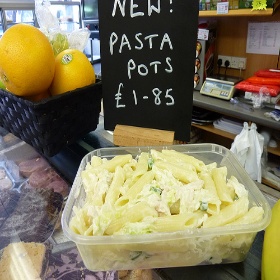 NEW!
PASTA
POTS
£1-85